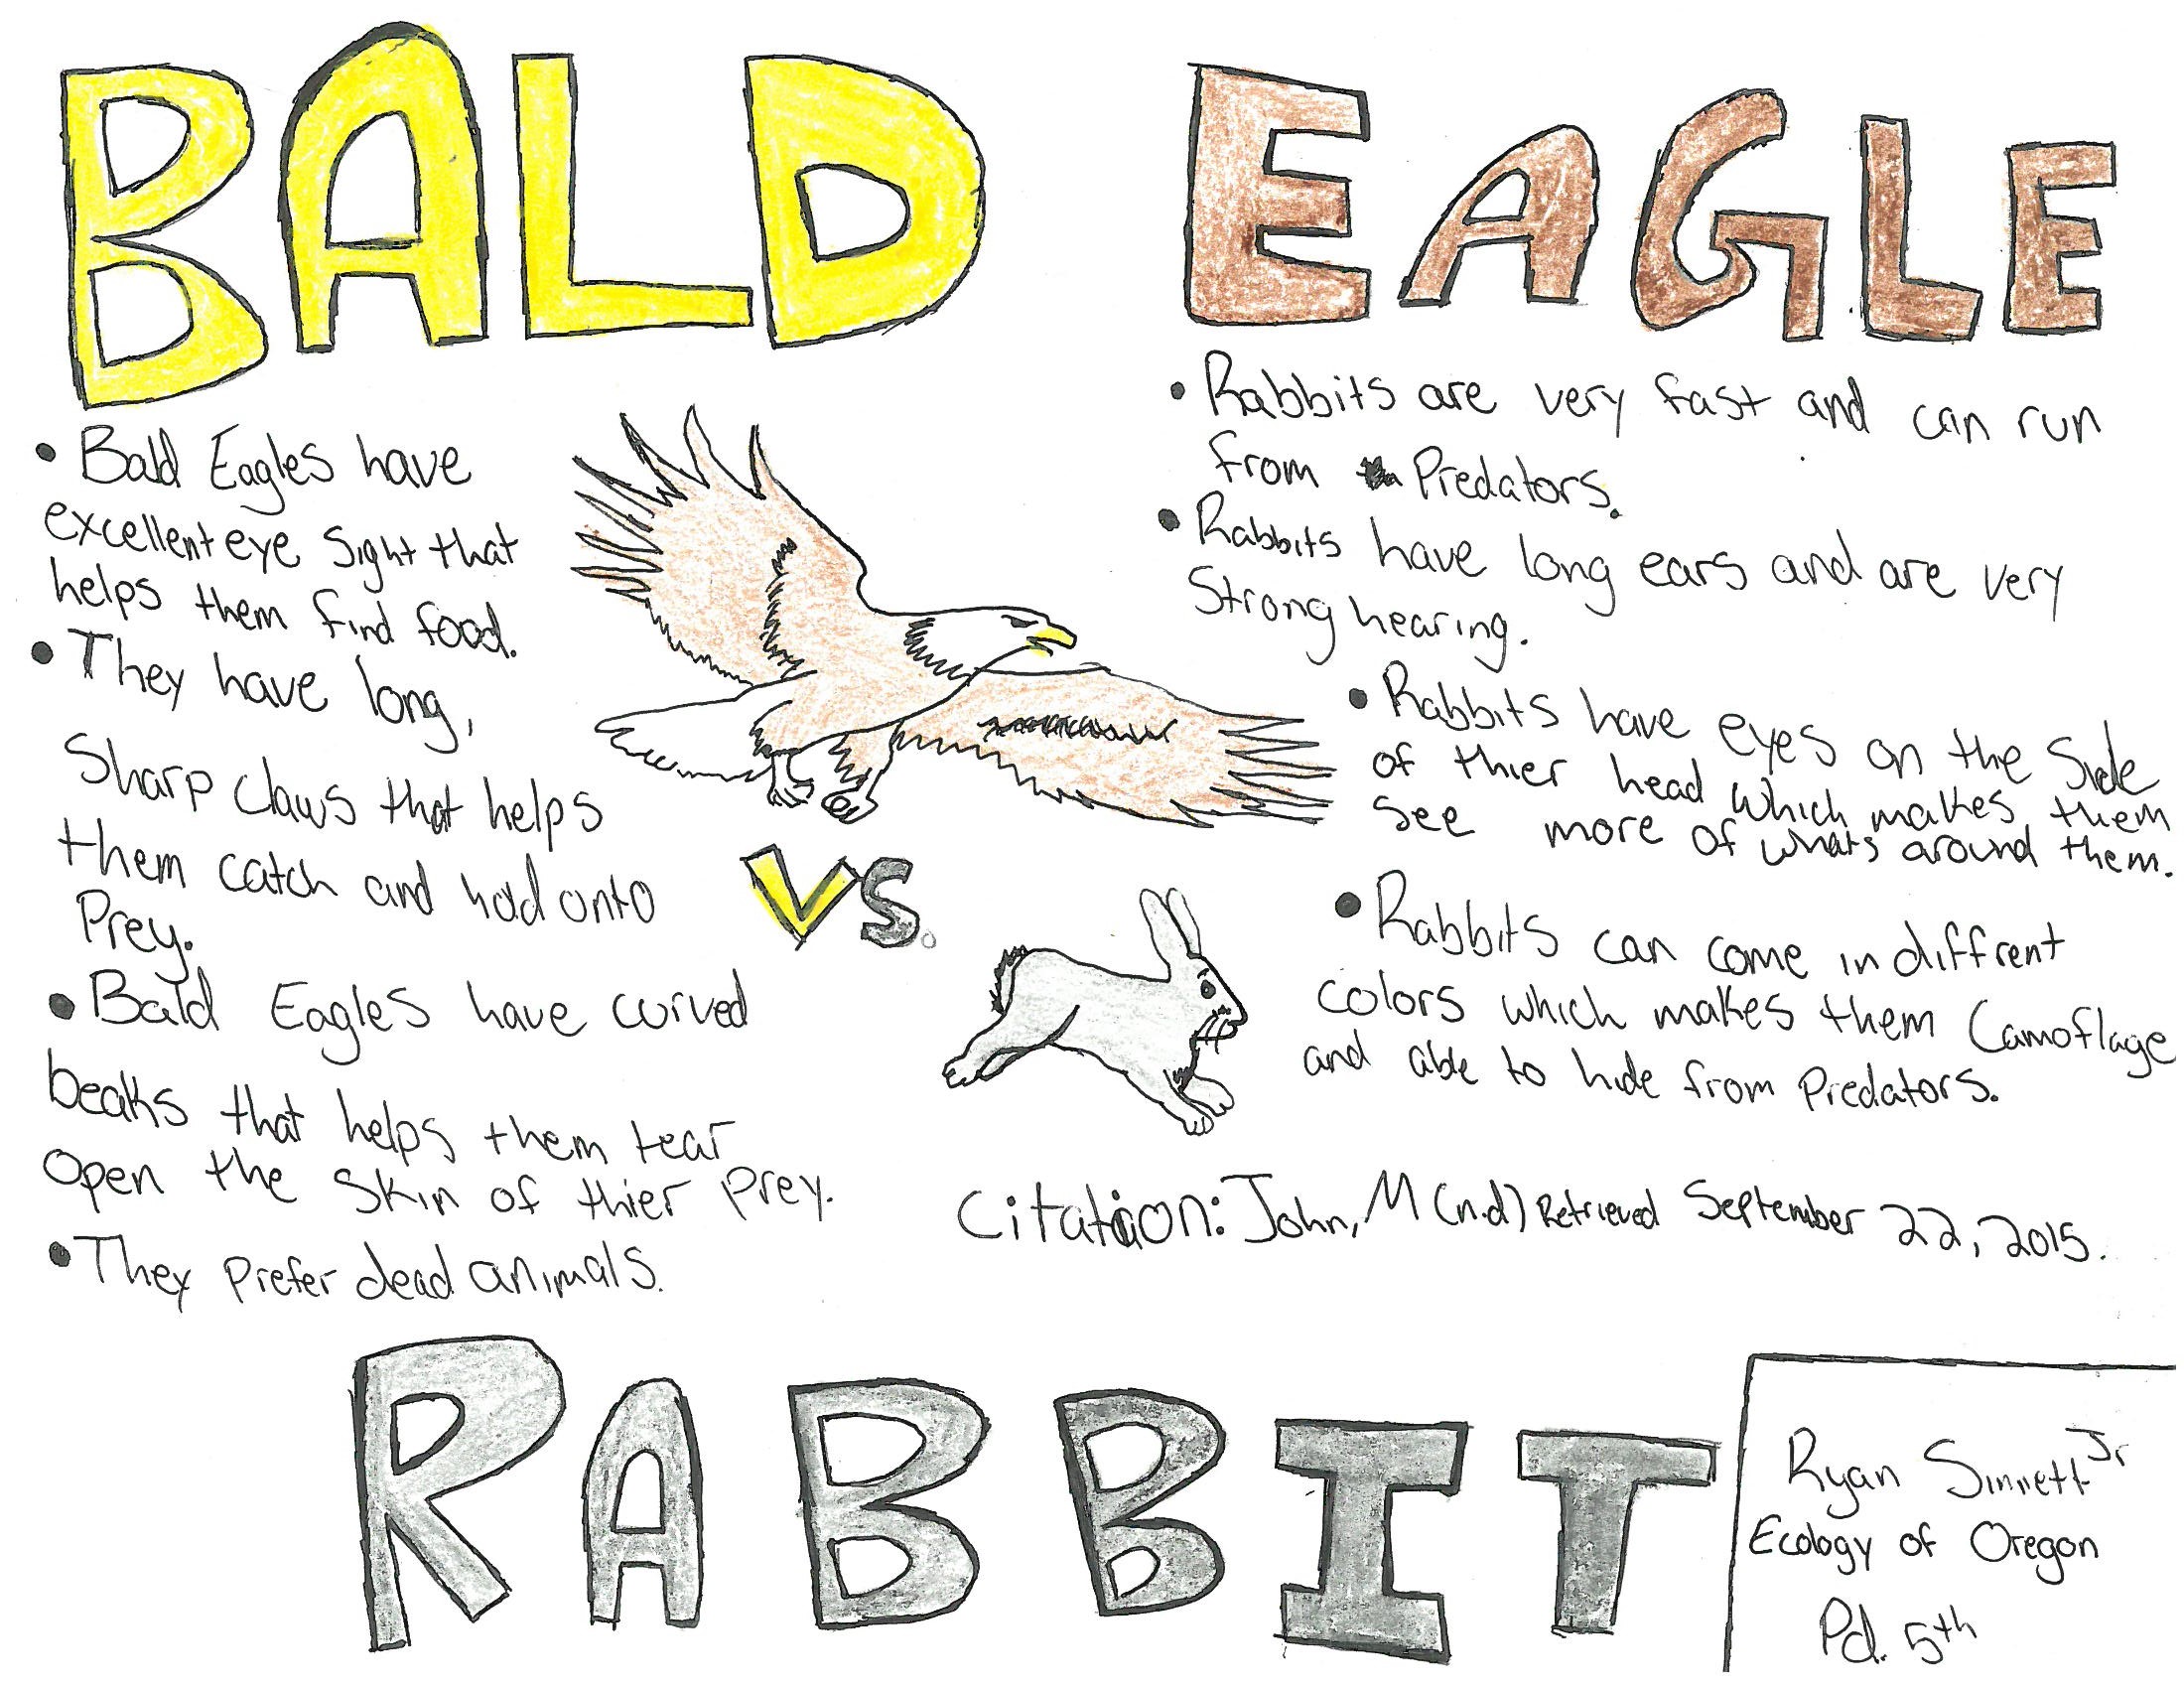 BALD EAGLE
• Bald Eagles have
excellent eye Sight that
helps them find food.
• They have long,
Sharp claws that helps
them catch and hold onto
Prey.
• Bald Eagles have curved
beaks that helps them tear
open the skin of thier prey.
• They prefer dead animals.
• Rabbits are very fast and can run
from Predators.
• Rabbits have long ears and are very
Strong hearing.
• Rabbits have eyes on the Side
of thier head which makes them
see more of whats around them.
• Rabbits can come in diffrent
colors which makes them Camoflage
and able to hide from predators.
VS.
Citation: John, M (n.d) Retrieved September 22, 2015.
RABBIT
Ryan Sinnett Jr
Ecology of Oregon
Pd. 5th